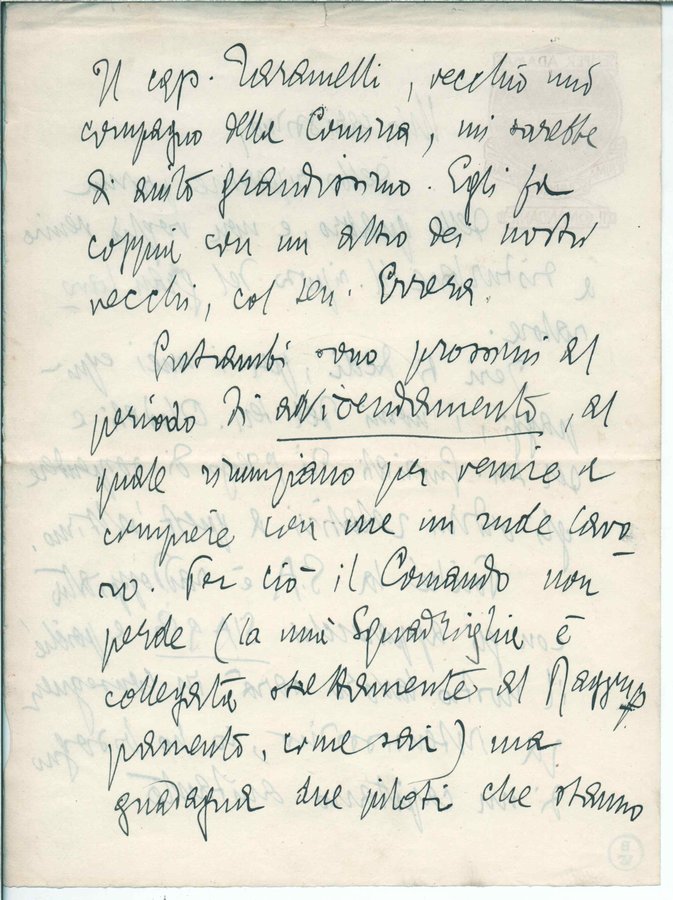 Il cap. Taramelli, vecchio mio
compagno della Comina, mi sarebbe
di aiuto grandissimo. Egli fa
coppia con un altro dei nostri
vecchi, col ten. Errera.
Entrambi sono prossimi al
periodo di avvicendamento, al
quale rinunziano per venire a
compiere con me un rude lavo-
ro. Per ciò il Comando non
perde (la mia Squadriglia è
collegata strettamente al Raggrup-
pamento, come sai) ma
guadagna due piloti che stanno